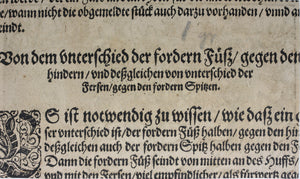 / wann nicht die obgemeldte stück auch darzu vorhanden / vnnd
findt.
Von dem vnterschied der fordern Füß / gegen den
hindern / vnd deßgleichen von vnterschied der
Fersen / gegen den fordern Spitzen.
ES ist notwendig zu wissen / wie daß ein
ser vnterschied ist / der fordern Füß halben / gegen den hin
deßgleichen auch der fordern Spitz halben gegen den
Dann die fordern Füß seindt von mitten an des Huffs /
vnd mit den Fersen / viel empfindlicher / als fürwertz gegen